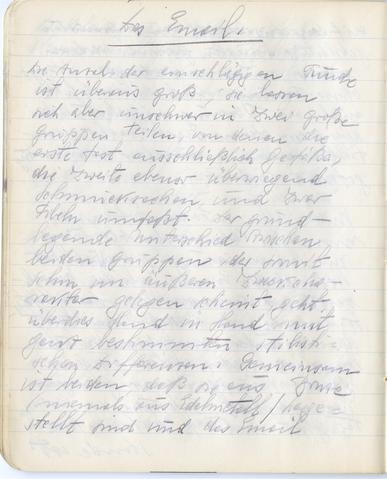 Das Email.
Die Anzahl der einschlägigen Funde
ist überaus groß, sie lassen
sich aber unschwer in zwei große
gruppen teilen, von denen die
erste fast ausschließlich Gefäße,
die zweite ebenso überwiegend
Schmucksachen und zwar
Fibeln umfaßt. Der grund-
legende Unterschied zwischen
beiden Gruppen, der somit
schon im äußeren
gelegen scheint, geht
überdies Hand in Hand mit
ganz bestimmten stilisti-
schen Differenzen. Gemeinsam
ist beiden, daß sie aus Bronze
/niemals aus Edelmetall/ herge-
stellt sind und das Email